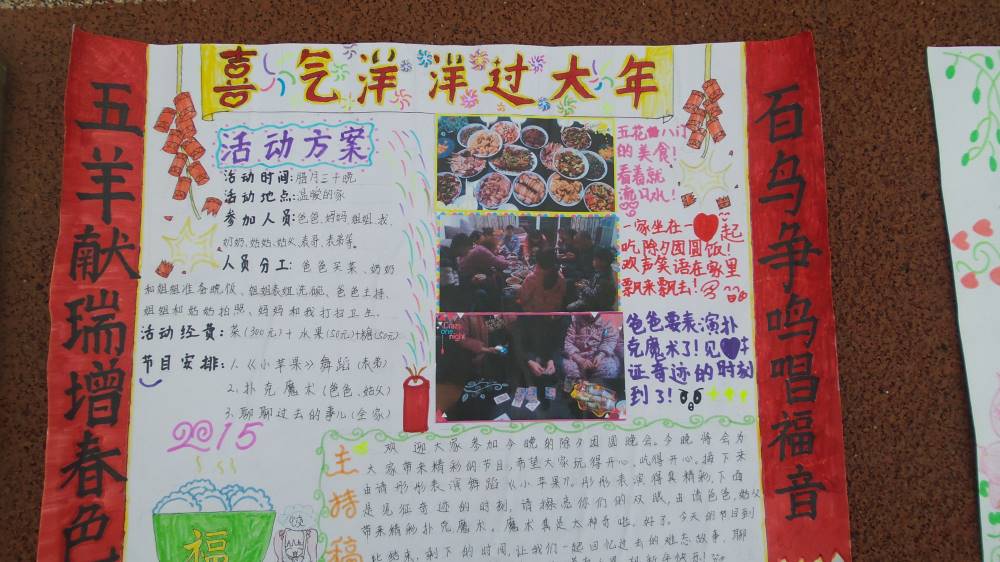 喜气洋洋过大年
五羊献瑞增春色
百鸟争鸣唱福音
活动方案
活动时间:腊月三十晚
活动地点:温暖的家
参加人员:爸爸、妈妈、姐姐、我、
奶奶、姑姑、姑父、表哥、表弟等。
人员分工:爸爸买菜、奶奶
和姐姐准备晚饭、姐姐表妞洗碗、爸爸主持、
姐姐和奶奶拍照、妈妈和我打扫卫生。
活动经费:菜(300元)+水果(50元)+糖(50元)
节目安排:1.《小苹果》舞蹈(表弟)
2.扑克魔术(爸爸、姑父)
3.聊聊过去的事儿(全家)
2015
五花八门
的美食!
看着就
流口水!
一家坐在一起
吃除夕团圆饭!
欢声笑语在家里
飘来飘去!
爸爸要表演扑
克魔术了!见证
证奇迹的时刻
到了!
Crazy
one
night
主持稿
欢迎大家参加今晚的除夕团圆晚会。今晚将会为
大家带来精彩的节目,希望大家玩得开心,吃得开心。接下来
由请彤彤表演舞蹈《小苹果》。彤彤表演得真精彩,下面
是见证奇迹的时刻,请擦亮你们的双眼,由请爸爸、姑父
带来精彩扑克魔术。魔术真是太神奇啦。好了,今天的节目到
此结束,剩下的时间,让我们一起回忆过去的难忘故事,聊
福